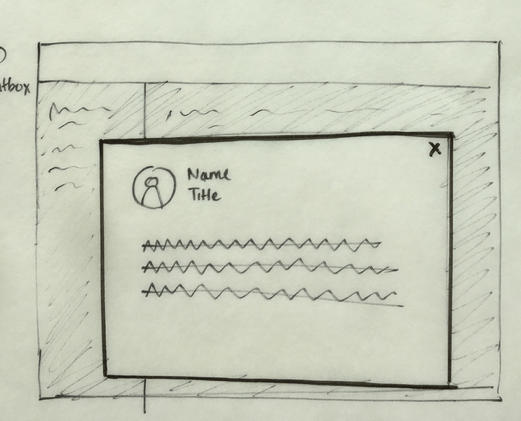 tbox
x
Name
Title